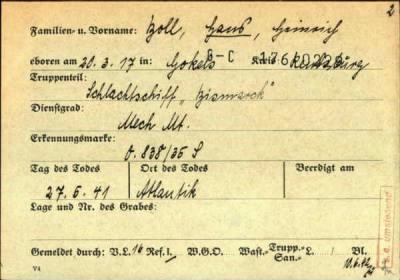 2
Familien- u. Vorname: Boll, Hans, Heinrich
B-C 1760228
eboren am 20.3.17 in: Gokels Kreis Rendsburg
Truppenteil:
Schlachtschiff „Bismarck"
Dienstgrad:
Mech Mt.
Erkennungsmarke:
O. 838/35 S
Tag des Todes Ort des Todes Beerdigt am
27.5.41 Atlantik
Lage und Nr. des Grabes:
Gemeldet durch: V.L. 16 Ref. I. W.G.O. Wast.- Trupp.- L. Bl.
San.-
V4